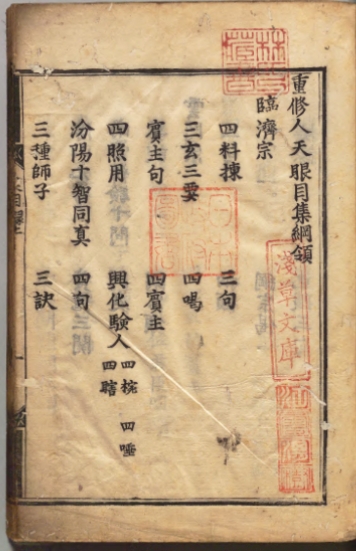 重修人天眼目集綱領
臨濟宗
四料揀 三句
三玄三要 四喝
賓主句 四賓主
四照用 興化驗人 四椀 四唾 四瞎
汾陽十智同真 四句
三種師子 三訣
淺草文庫